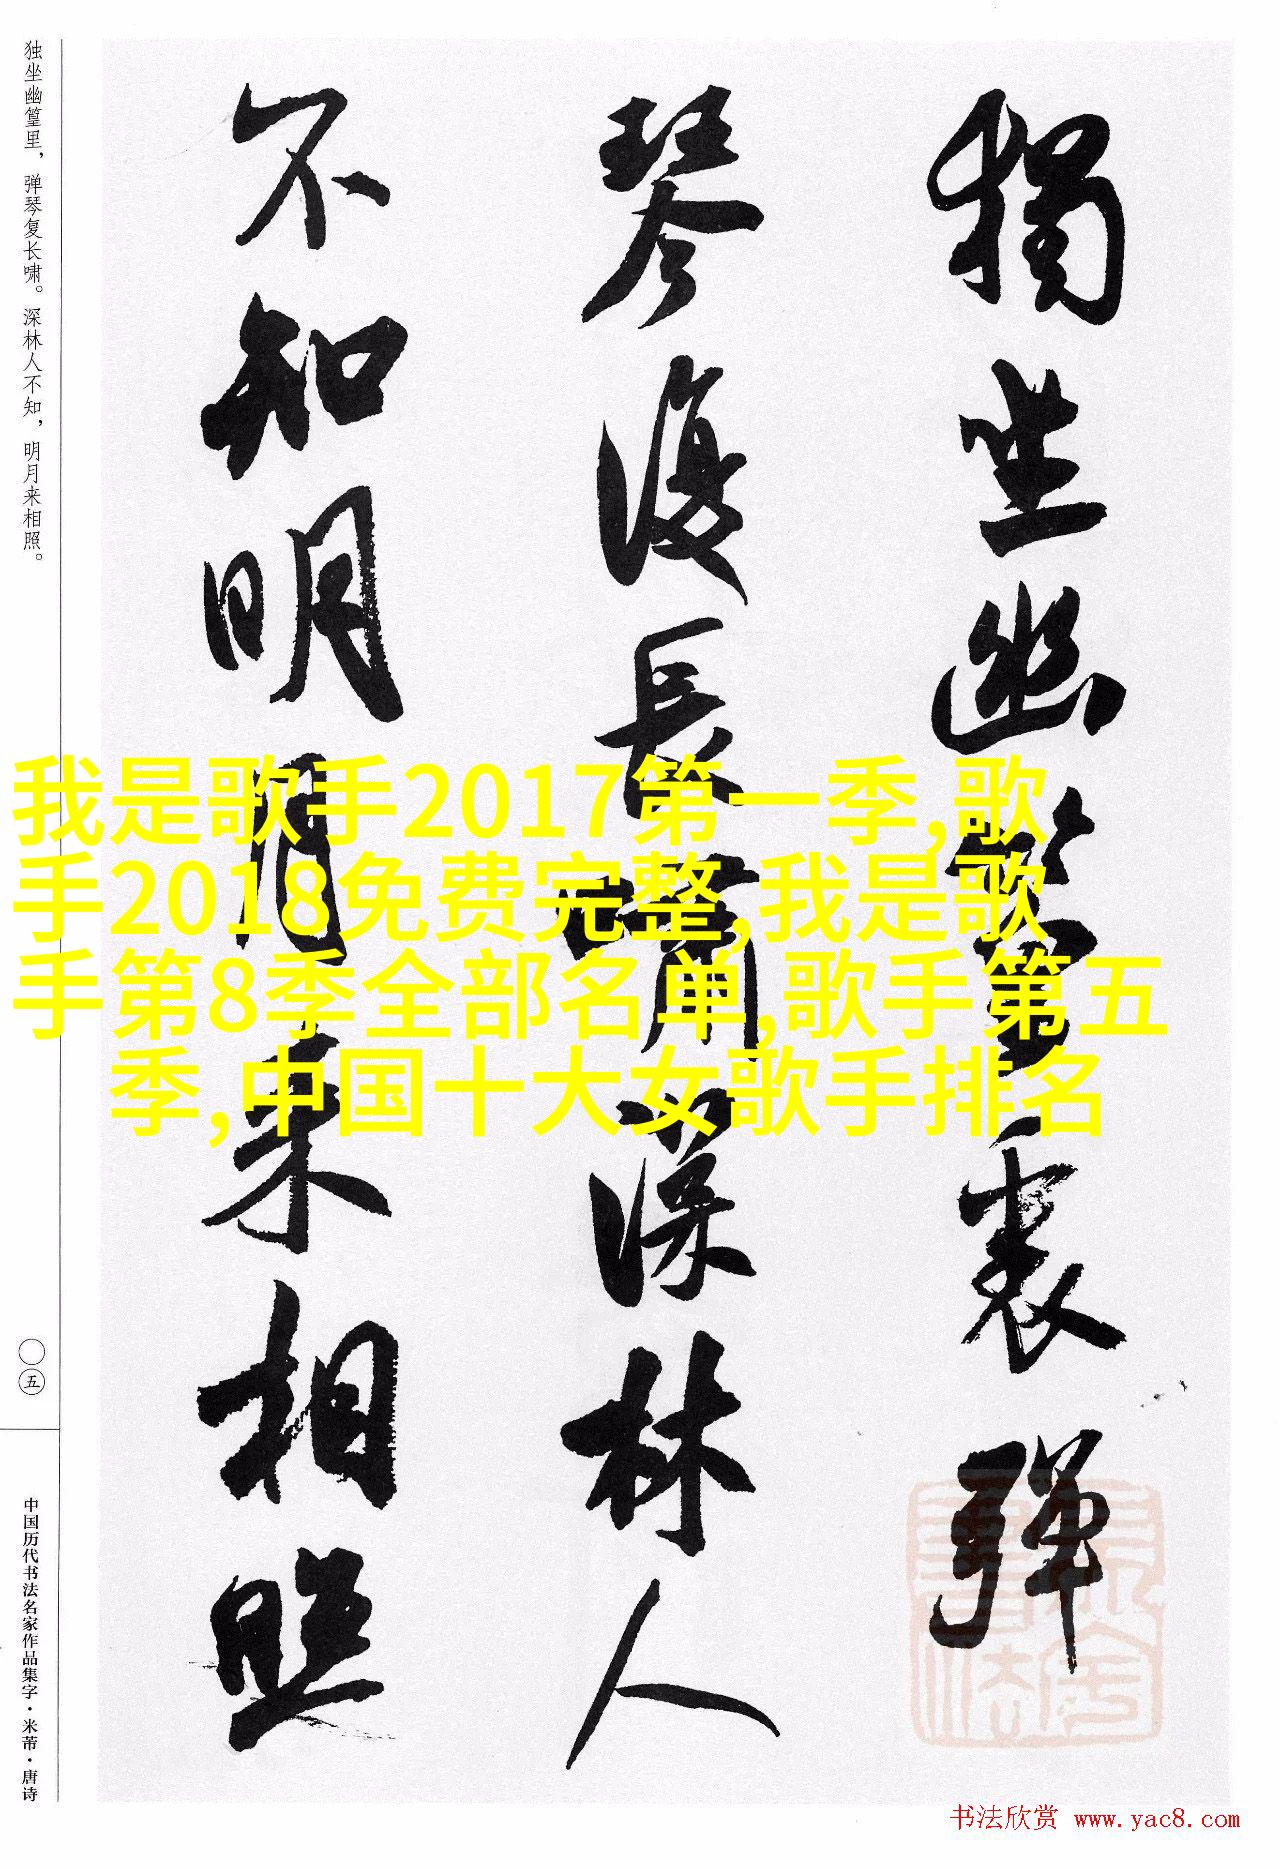 獨坐幽篁裏彈
琴復長嘯深林人
不知明月来相照
独坐幽篁里，弹琴复长啸。深林人不知，明月来相照。
〇五
中国历代书法名家作品集字·米芾·唐诗
我是歌手2017第一季,歌
手2018免费完整,我是歌
手第8季全部名单,歌手第五
季,中国十大女歌手排名
书法欣赏 www.yac8.com